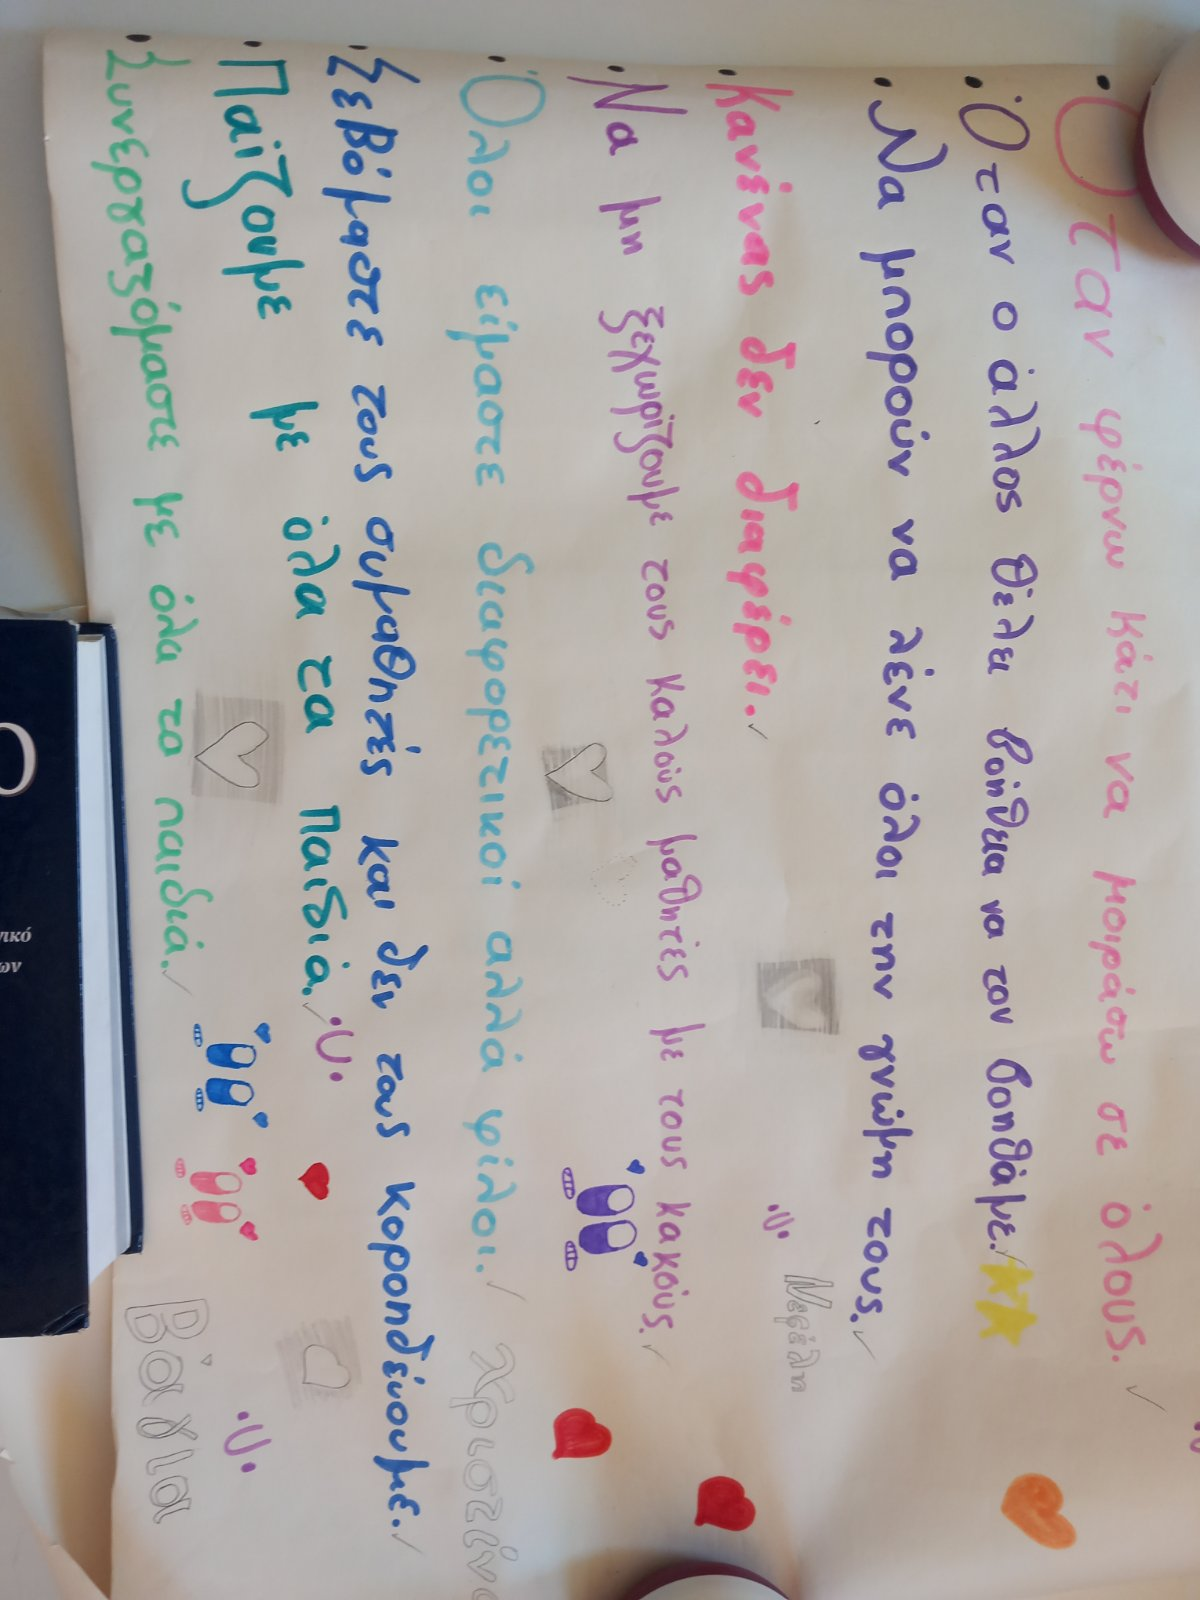 • Όταν φέρνω κάτι να μοιράσω σε όλους.
• Όταν ο άλλος θέλει βοήθεια να τον βοηθάμε.
• Να μπορούν να λένε όλοι την γνώμη τους.
• Κανένας δεν διαφέρει.
Νεφέλη
• Να μη ξεχωρίζουμε τους καλούς μαθητές με τους κακούς.
• Όλοι είμαστε διαφορετικοί αλλά φίλοι.
Χριστίνα
• Σεβόμαστε τους συμαθητές και δεν τους κοροπδέυουμε.
• Παίζουμε με όλα τα παιδιά.
• Συνέργαζόμαστε με όλα τα παιδιά.
Βάγια